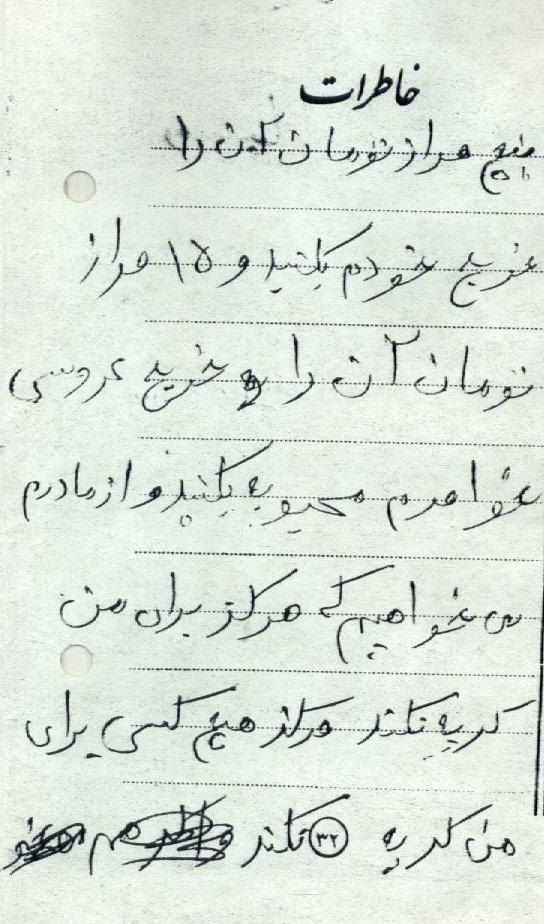 خاطرات
پنج هزار تومان آن را
خرج خودم بکنید و ۱۵ هزار
تومان آن را خرج عروسی
خواهرم محبوبه بکنید و از مادرم
می خواهیم که هرگز برای من
گریه نکند هرگز هیچ کسی برای
من گریه نکند ۳۲